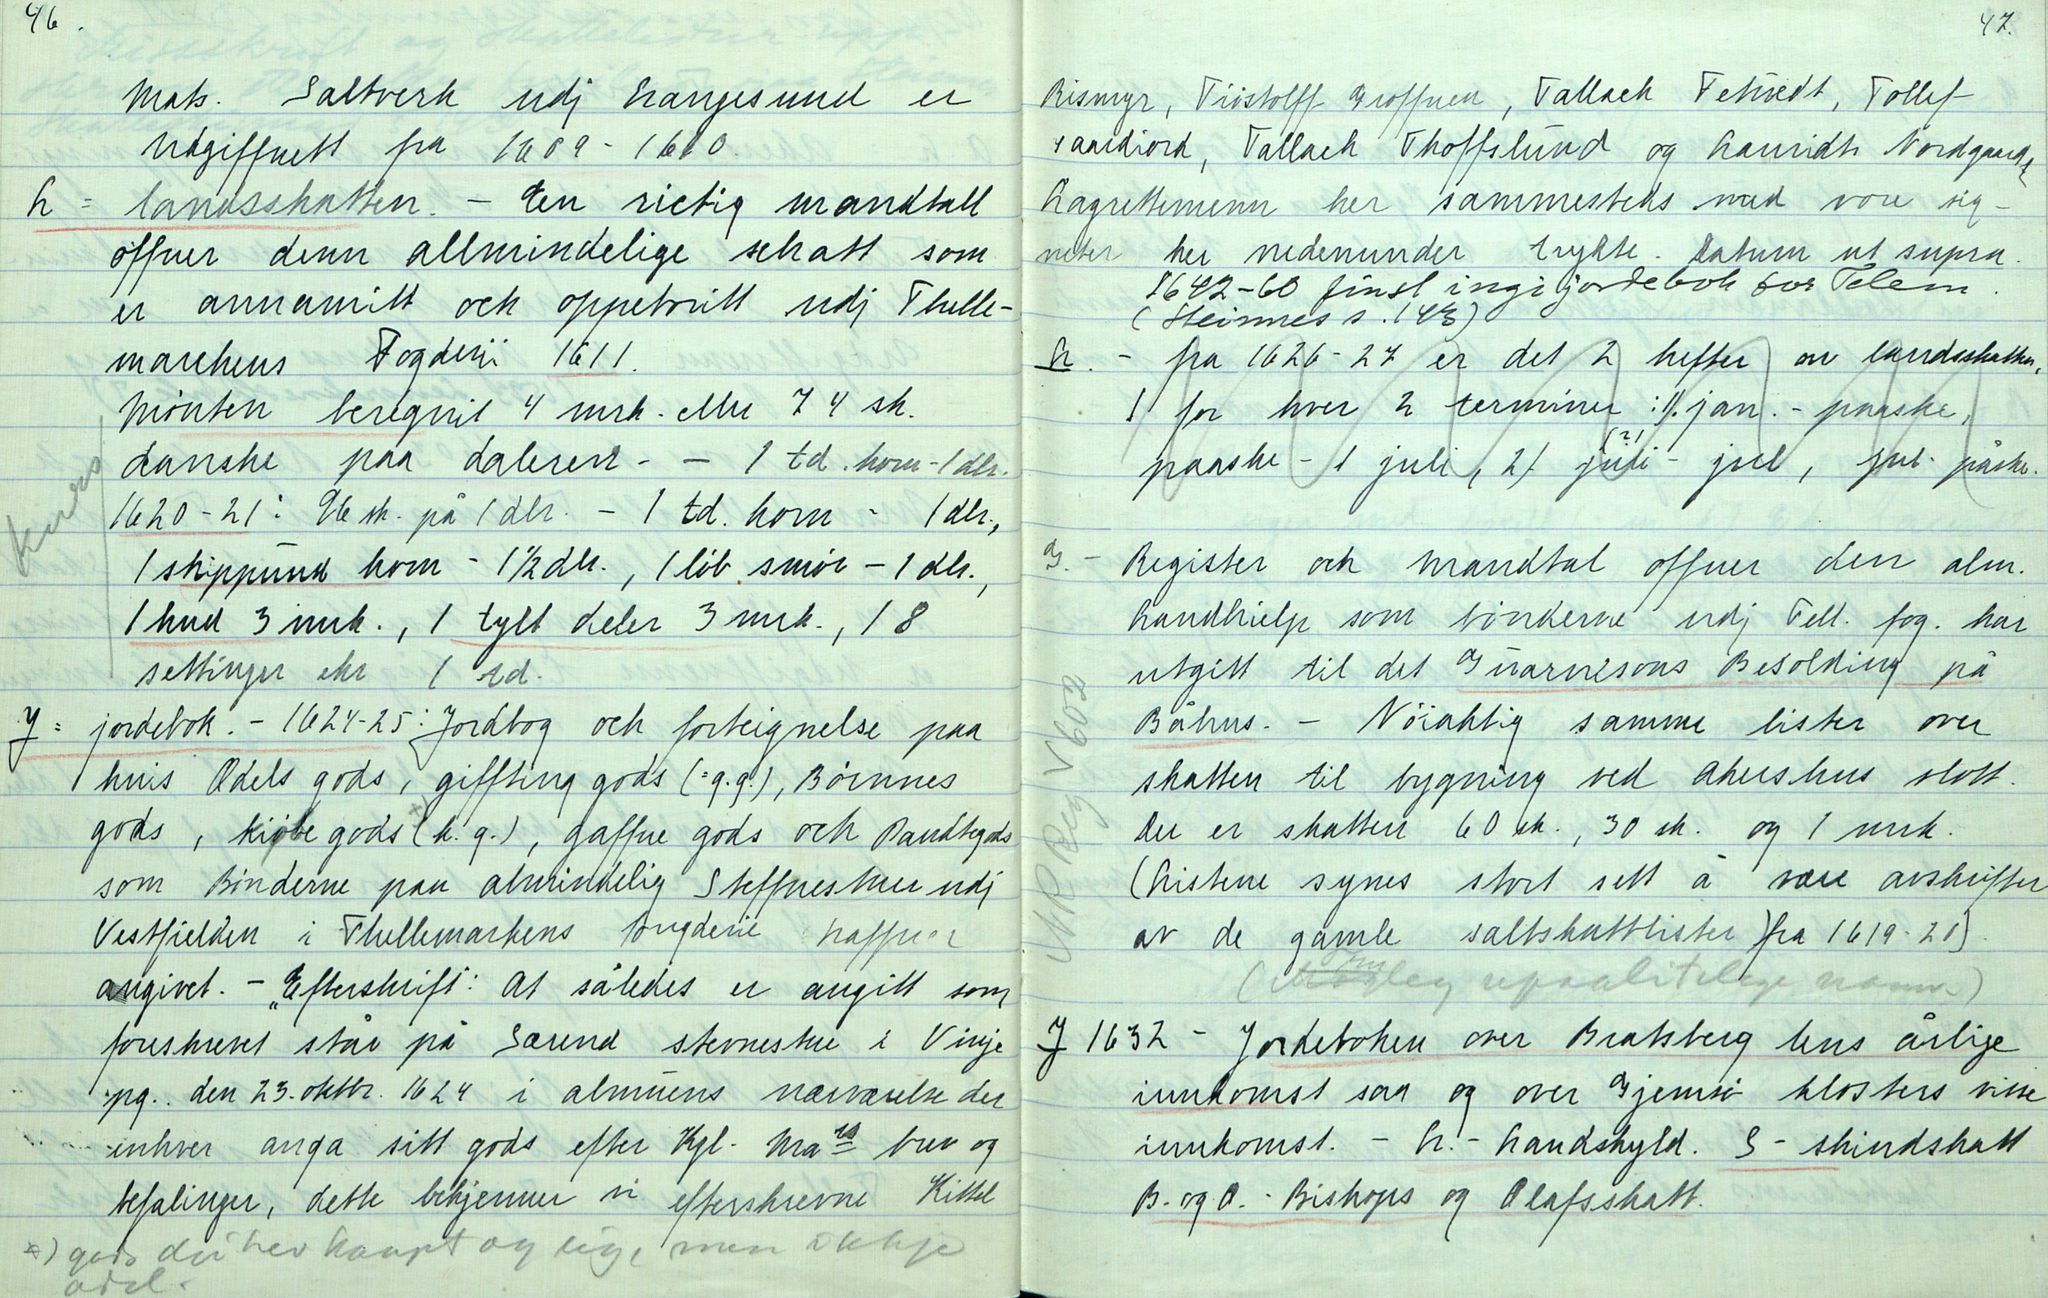 46.
Mats. Saltverk udj Langesund er
Udgiffuett fra 1609-1610.
L = landsskatten. - Een rictig mandtall
offuer denn allmindelige schatt som
er annamitt och oppeborit udj Thelle-
marchens Fogderii 1611.
Mønten beregnit 4 mrk. eller 74 sk.
danske paa daleren - - 1 td. korn - 1 dlr.
1620-21: 96 sk. på 1 dlr. - 1 td. korn - 1 dlr.,
1 skippund korn - 1½ dlr., 1 løb smør - 1 dlr.,
1 hud 3 mrk., 1 tylt deler 3 mrk., 18
settinger ekr 1 td.
Kurs
J = jordebok. - 1624-25: Jordbog och forteignelse paa
huis Odels gods, giffting gods (=g.g.), Bøinnes
gods, kiøbe gods x) (k.g.), gaffue gods och Pandtegods
som Bønderne paa almindelig Steffnestuer udj
Vestfielden i Thellemarkens fougderie haffuer
angivet. - "Efterskrift": At således er angitt som
foreskrevet står på Særend stevnestue i Vinje
pg. den 23. oktbr. 1624 i almuens nærværelse der
enhver anga sitt gods efter Kgl. Mats brev og
befalinger, dette bekjenner vi efterskrevne Kittel
x) gods dei hev kaupt og eige, men ikkje
odel.
47.
Rismyr, Tiøstolff Groffuen, Tallack Tetvedt, Tollef
Vaardiord, Tallack Thoffslund og Lauridts Nordgaarden
Lagrettemenn her sammesteds med vore sig-
neter her nedenunder trykte. Datum ut supra.
1642-60 finst ingi jordebok for Telem.
(Steinnes s. 143)
L. - fra 1626-27 er det 2 hefter av landsskatten,
1 for hver 2 terminer: 1/. jan. - paaske,
paaske - 1 juli, 2/ juli (?) - jul, jul - påske.
G. - Register och mandtal offuer den alm.
Landhielp som bønderne udj Tell. fog. har
utgitt til det Guarnisons Besolding på
Båhus. - Nøiaktig samme lister over
skatten til bygning ved Akershus slott.
Der er skatten 60 sk., 30 sk. og 1 mrk.
(Listene synes stort sett å være avskrifter
av de gamle saltskattlister) fra 1619-20).
upaalitelege namn)
J 1632 - Jordeboken over Bratsberg lens årlige
innkomst saa og over Gjemsø klosters visse
innkomst. - L. - Landskyld. S - skindskatt
B. og O. - Bishops og Olafsskatt.